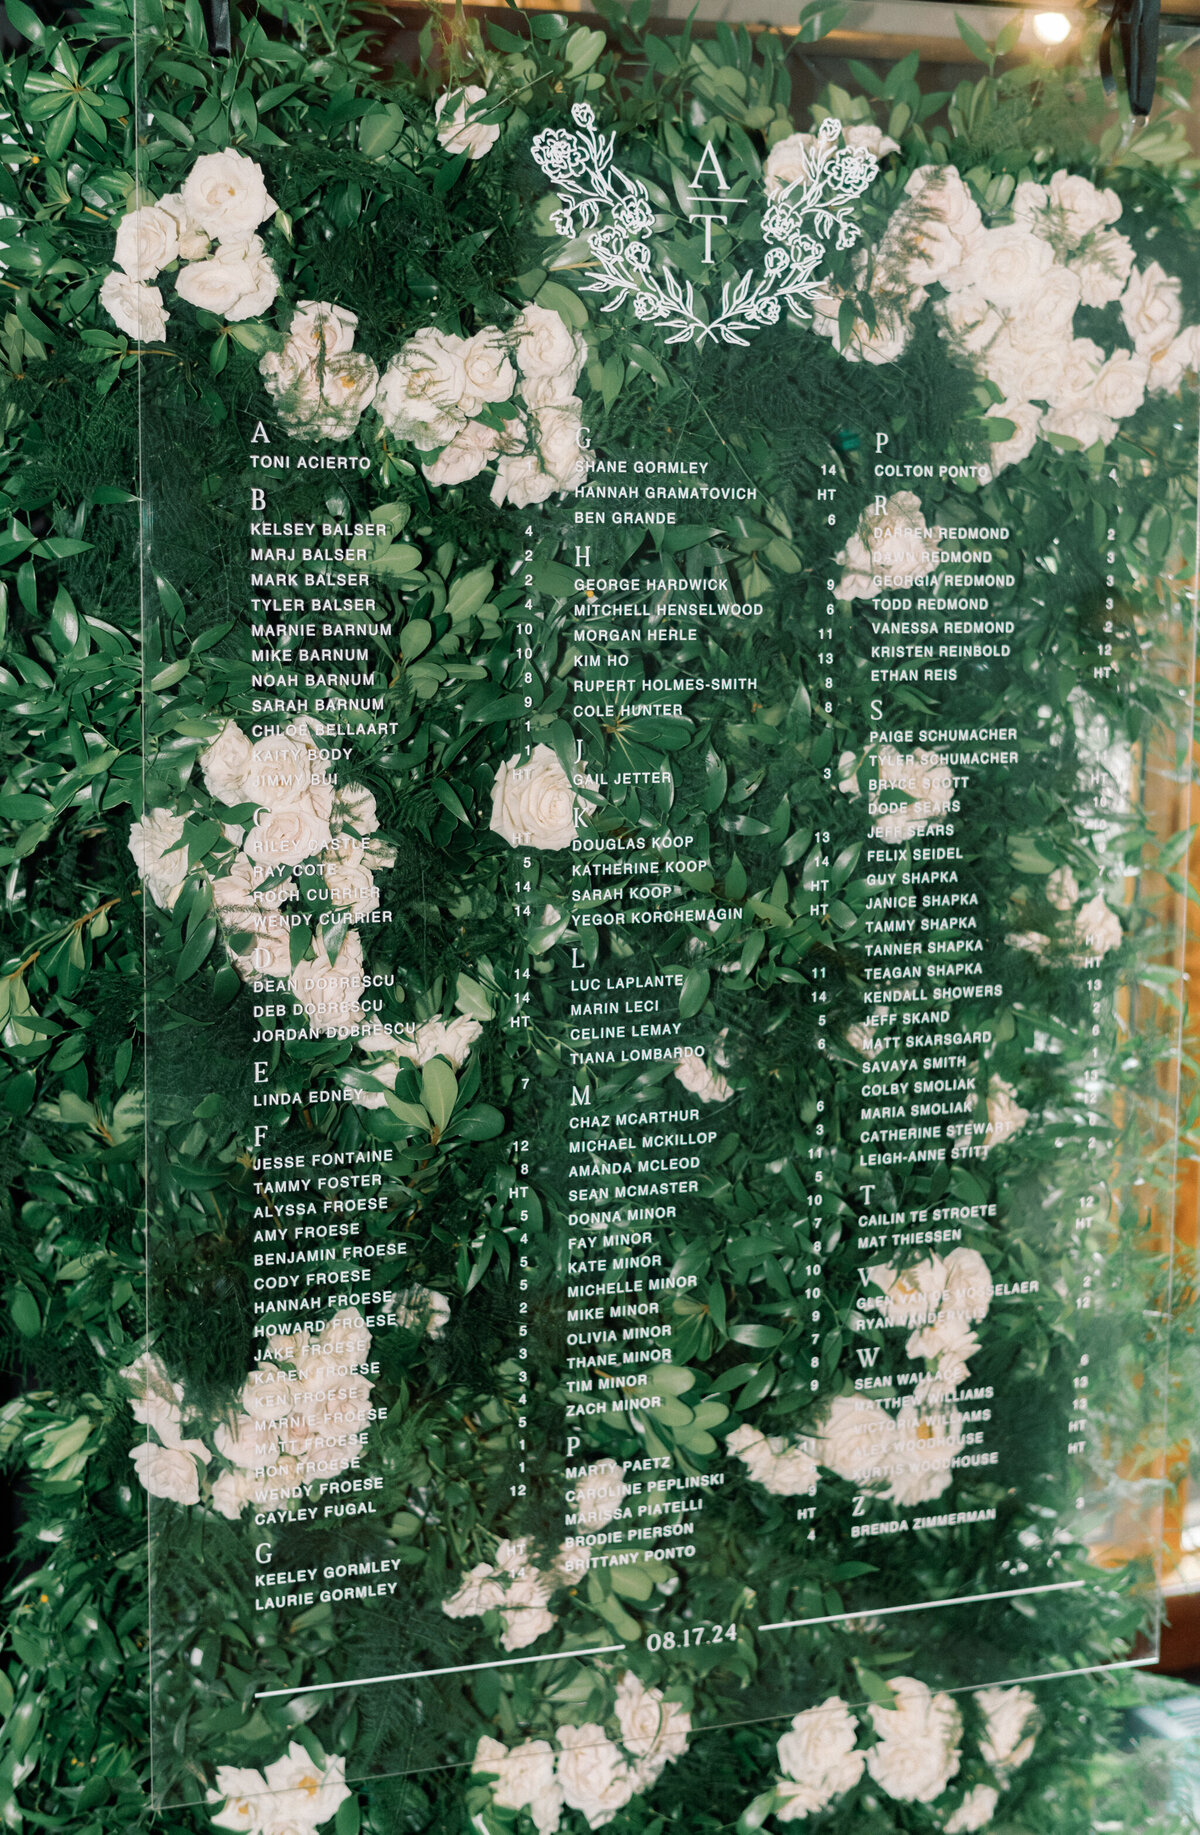 A
T
A
TONI ACIERTO 1
B
KELSEY BALSER 4
MARJ BALSER 2
MARK BALSER 2
TYLER BALSER 4
MARNIE BARNUM 10
MIKE BARNUM 10
NOAH BARNUM 8
SARAH BARNUM 9
CHLOE BELLAART 1
KAITY BODY 1
JIMMY BUI HT
C
RILEY CASTLE HT
RAY COTE 5
ROCH CURRIER 14
WENDY CURRIER 14
D
DEAN DOBRESCU 14
DEB DOBRESCU 14
JORDAN DOBRESCU HT
E
LINDA EDNEY 7
F
JESSE FONTAINE 12
TAMMY FOSTER 8
ALYSSA FROESE HT
AMY FROESE 5
BENJAMIN FROESE 4
CODY FROESE 5
HANNAH FROESE 5
HOWARD FROESE 2
JAKE FROESE 5
KAREN FROESE 3
KEN FROESE 3
MARNIE FROESE 4
MATT FROESE 5
RON FROESE 1
WENDY FROESE 1
CAYLEY FUGAL 12
G
KEELEY GORMLEY HT
LAURIE GORMLEY 14
G
SHANE GORMLEY 14
HANNAH GRAMATOVICH HT
BEN GRANDE 6
H
GEORGE HARDWICK 9
MITCHELL HENSELWOOD 6
MORGAN HERLE 11
KIM HO 13
RUPERT HOLMES-SMITH 8
COLE HUNTER 8
J
GAIL JETTER 3
K
DOUGLAS KOOP 13
KATHERINE KOOP 14
SARAH KOOP HT
YEGOR KORCHEMAGIN HT
L
LUC LAPLANTE 11
MARIN LECI 14
CELINE LEMAY 5
TIANA LOMBARDO 6
M
CHAZ MCARTHUR 6
MICHAEL MCKILLOP 3
AMANDA MCLEOD 11
SEAN MCMASTER 5
DONNA MINOR 10
FAY MINOR 7
KATE MINOR 8
MICHELLE MINOR 10
MIKE MINOR 10
OLIVIA MINOR 9
THANE MINOR 7
TIM MINOR 8
ZACH MINOR 9
P
MARTY PAETZ 11
CAROLINE PEPLINSKI
MARISSA PIATELLI 9
BRODIE PIERSON HT
BRITTANY PONTO 4
P
COLTON PONTO 4
R
DARREN REDMOND 2
DAWN REDMOND 3
GEORGIA REDMOND 3
TODD REDMOND 3
VANESSA REDMOND 2
KRISTEN REINBOLD 12
ETHAN REIS HT
S
PAIGE SCHUMACHER 11
TYLER SCHUMACHER 11
BRYCE SCOTT HT
DODE SEARS 10
JEFF SEARS 10
FELIX SEIDEL
GUY SHAPKA 7
JANICE SHAPKA 7
TAMMY SHAPKA
TANNER SHAPKA HT
TEAGAN SHAPKA HT
KENDALL SHOWERS 13
JEFF SKAND 2
MATT SKARSGARD 6
SAVAYA SMITH 1
COLBY SMOLIAK 13
MARIA SMOLIAK 12
CATHERINE STEWART
LEIGH-ANNE STITT 2
T
CAILIN TE STROETE 12
MAT THIESSEN HT
V
GLEN VAN DE MOSSELAER 2
RYAN 12
W
SEAN WALLACE 6
MATTHEW WILLIAMS 13
VICTORIA WILLIAMS 13
ALEX WOODHOUSE HT
KURTIS WOODHOUSE HT
Z
BRENDA ZIMMERMAN 3
08.17.24